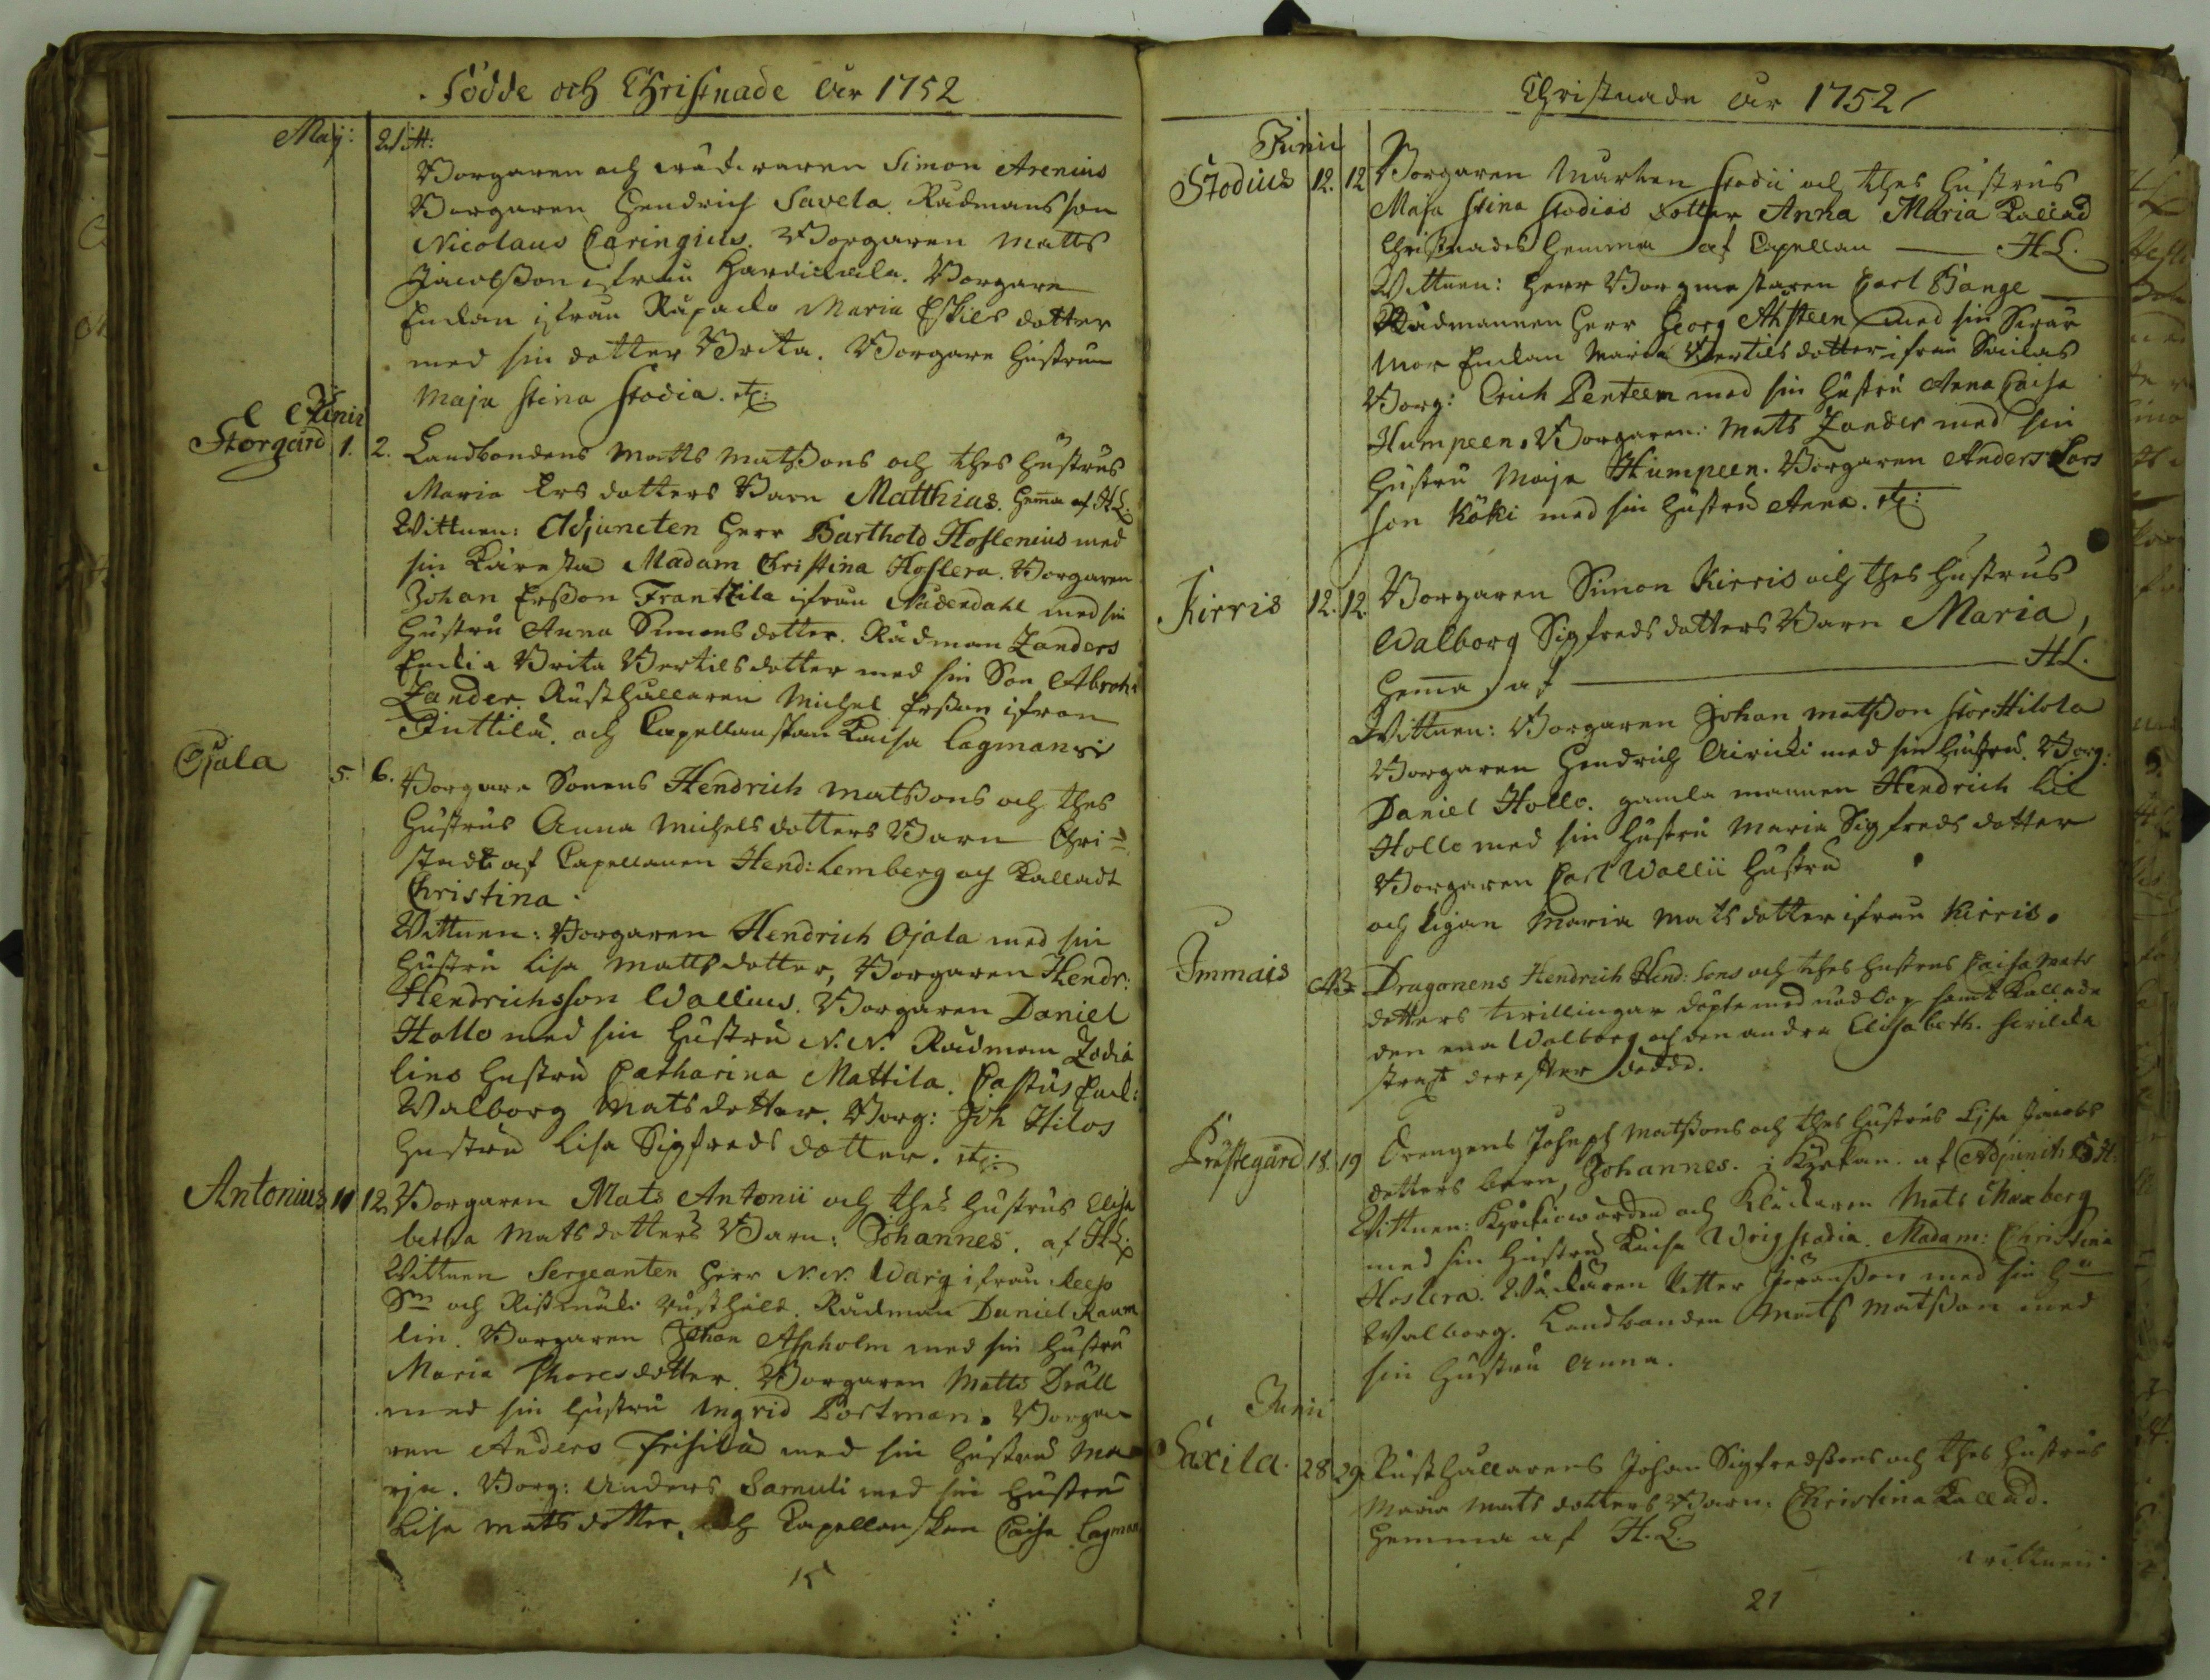 Födde och Christnade År 1752
Maij: 21
Borgaren och Simon Arenius
Borgaren Hendrich Savela. Rådmans son
Nicolaus Caringius. Borgaren Matts
Jacobsson ifrån Borgare
Enkan ifrån Maria Eskils dotter
med sin dotter Brita. Borgare hustrun
Maja Stina Stodia. etc:
Junii
Storgård 1. 2. Landbondens Matts Matssons och thes hustrus
Maria Ers dotters Barn Matthias. hema af HL.
Wittnen: Adjuncten Herr Barthold Hoslenius med
sin Kiäresta Madam Christina Hoslera. Borgaren
Johan Ersson Frantzila ifrån Nådendahl med sin
hustru Anna Simons dotter. Rådman Zanders
Enkia Brita Bertils dotter med sin Son Abrah:
Zander. Rusthållaren Michel Ersson ifrån
Juttila. och Capellanskan Kaisa Lagman
Ojala 5. 6. Borgare Sonens Hendrich Matssons och thes
hustrus Anna Michels dotters Barn Chri=
stnadt af Capellanen Hend: Lemberg och Kalladt
Christina.
Wittnen: Borgaren Hendrich Ojala med sin
hustru Lisa Matts dotter, Borgaren Hendr:
Hendrichsson Wallius. Borgaren Daniel
Hollo med sin hustru N.N. Rådman Zodia
lins hustru Catharina Mattila.
Walborg Mats dotter. Borg: Joh Hilos
hustru Lisa Sigfreds dotter. etc:
Antonius 11 12. Borgaren Mats Antonii och thes hustrus Elisa
betha Mats dotters Barn: Johannes. af HL.
Wittnen Sergeanten Herr N.N. Warg ifrån
och Rådman Daniel Raum
lin. Borgaren Johan Aspholm med sin hustru
Maria Thores dotter. Borgaren Matts Dräll
med sin hustru Ingrid Portman. Borga
ren Anders Frisila med sin hustru Ma
ria. Borg: Anders Samuli med sin hustru
Lisa Mats dotter, och Capellanskan Caisa Lagman
15
Christnade År 1752
Junii
Stodius 12. 12 Borgaren Marten Stodii och thes hustrus
Maja Stina Stodias dotter Anna Maria Kallad
Christnades hemma af Capellan HL.
Wittnen: Herr Borgmestaren Carl Bange
Rådmannen Herr Georg Ahlsteen med sin Swär
mor Enkan Maria Bertils dotter ifrån Sailas
Borg: Erich Penteen med sin hustru Anna Caisa
Humpeen. Borgaren: Mats Zander med sin
hustru Maja Humpeen. Borgaren Anders Lars
son Köki med sin hustru Anna. etc:
Kirris 12. 12. Borgaren Simon Kirris och thes hustrus
Walborg Sigfreds dotters Barn Maria,
hema af HL.
Wittnen: Borgaren Johan Matsson Stor Hilola
Borgaren Hendrich Airicki med sin hustru. Borg:
Daniel Hollo. gamla mannen Hendrich Lill
Hollo med sin hustru Maria Sigfreds dotter
Borgaren Carl Wallii hustru
och Pigan Maria Mats dotter ifrån Kirris.
Immais NB Dragonens Hendrich Hend: Sons och thes hustrus Caisa Mats
dotters twillingar döpte med nöd dop samt Kallade
den ena Walborg och den andra Elisabeth. hwilka
strax derefter dödde.
Prästegård 18. 19 Drengens Joseph Matssons och thes hustrus Lisa Jacobs
dotters barn, Johannes. i Kyrkan. af Adjunct: BH.
Wittnen: Kyrkiowärden och Klockaren Mats Maxberg
med sin hustru Kaisa Wrigstadia. Madam: Christina
Hoslera. Petter Göransson med sin hu
Walborg. Landbonden Mats Matsson med
sin hustru Anna.
Junii
Saxila. 28 29. Rusthållarens Johan Sigfredssons och thes hustrus
Maria Mats dotters Barn. Christina Kallad.
hemma af H.L.
Wittnen
21